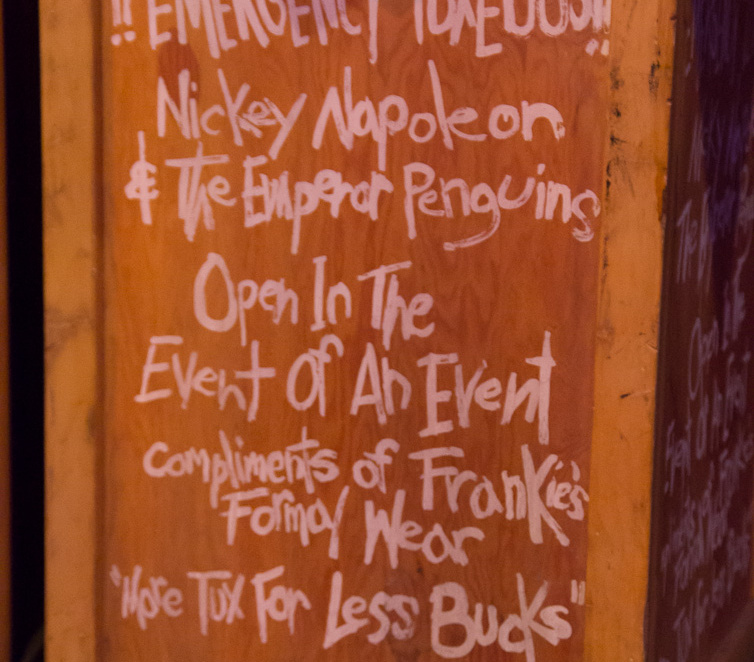 !! EMERGENCY TUXEDOS!!
Nickey Napoleon
& The Emperor Penguins
Open In The
Event Of An Event
compliments of Frankie's
Formal Wear
"More Tux For Less Bucks"